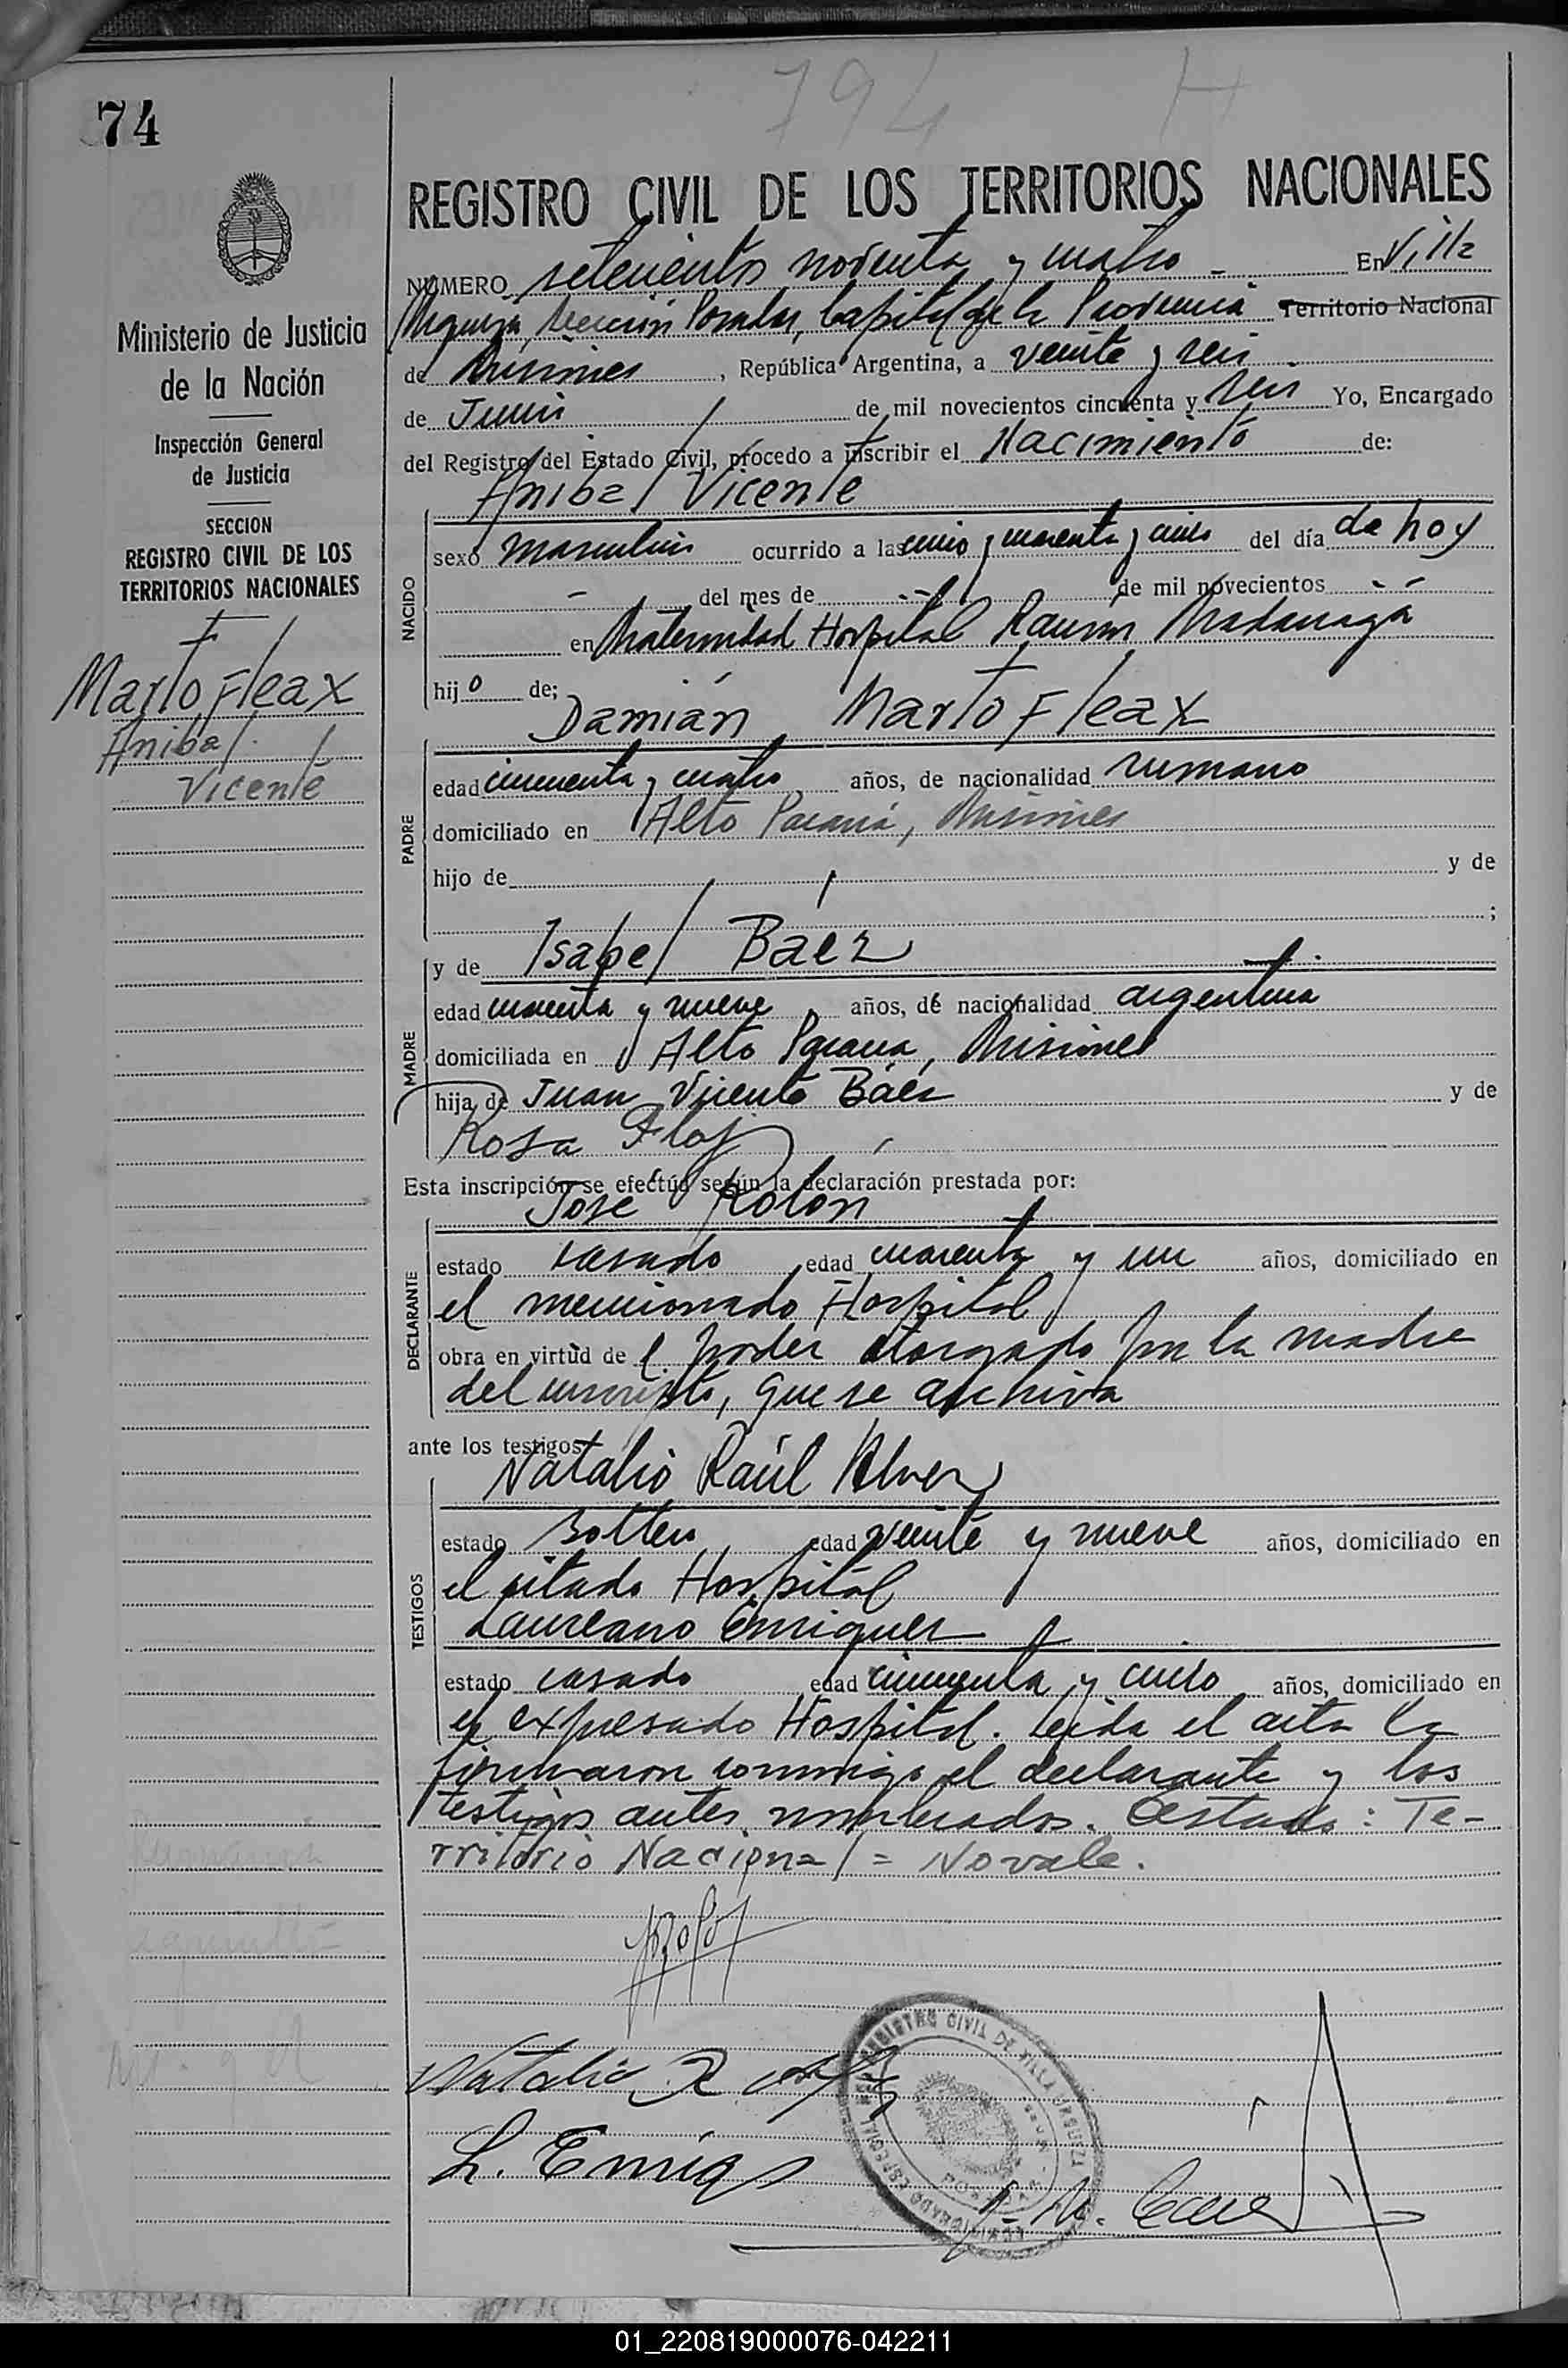 74
794 H
Ministerio de Justicia
de la Nación
Inspección General
de Justicia
SECCION
REGISTRO CIVIL DE LOS
TERRITORIOS NACIONALES
Martofleax
Anibal
Vicente
REGISTRO CIVIL DE LOS TERRITORIOS NACIONALES
NÚMERO setecientos noventa y cuatro En Villa
Urquiza, Sección Posadas, Capital de la Provincia Territorio Nacional
de Misiones, República Argentina, a veinte y seis
de Junio de mil novecientos cincuenta y seis Yo, Encargado
del Registro del Estado Civil, procedo a inscribir el Nacimiento de:
Anibal Vicente
NACIDO
sexo masculino ocurrido a las cinco y cuarenta y cinco del día de hoy
del mes de de mil novecientos
en Maternidad Hospital Ramón Madariaga
hijo de;
Damián Martofleax
PADRE
edad cincuenta y cuatro años, de nacionalidad rumano
domiciliado en Alto Paraná, Misiones
hijo de y de
;
y de Isabel Báez
MADRE
edad cuarenta y nueve años, de nacionalidad argentina
domiciliada en Alto Paraná, Misiones
hija de Juan Vicente Báez y de
Rosa
Esta inscripción se efectúa según la declaración prestada por:
José Rolón
DECLARANTE
estado casado edad cuarenta y un años, domiciliado en
el mencionado Hospital
obra en virtud de l poder otorgado por la madre
del inscripto, que se archiva
ante los testigos
Natalio Raúl
TESTIGOS
estado soltero edad veinte y nueve años, domiciliado en
el citado Hospital
Laureano Enriquez
estado casado edad cincuenta y cinco años, domiciliado en
el expresado Hospital. Leída el acta la
firmaron conmigo el declarante y los
testigos antes nombrados. Testado: Te-
rritorio Nacional = No vale.
Natalio R
L. Enriq
REGISTRO CIVIL DE VILLA URQUIZA
01_220819000076-042211